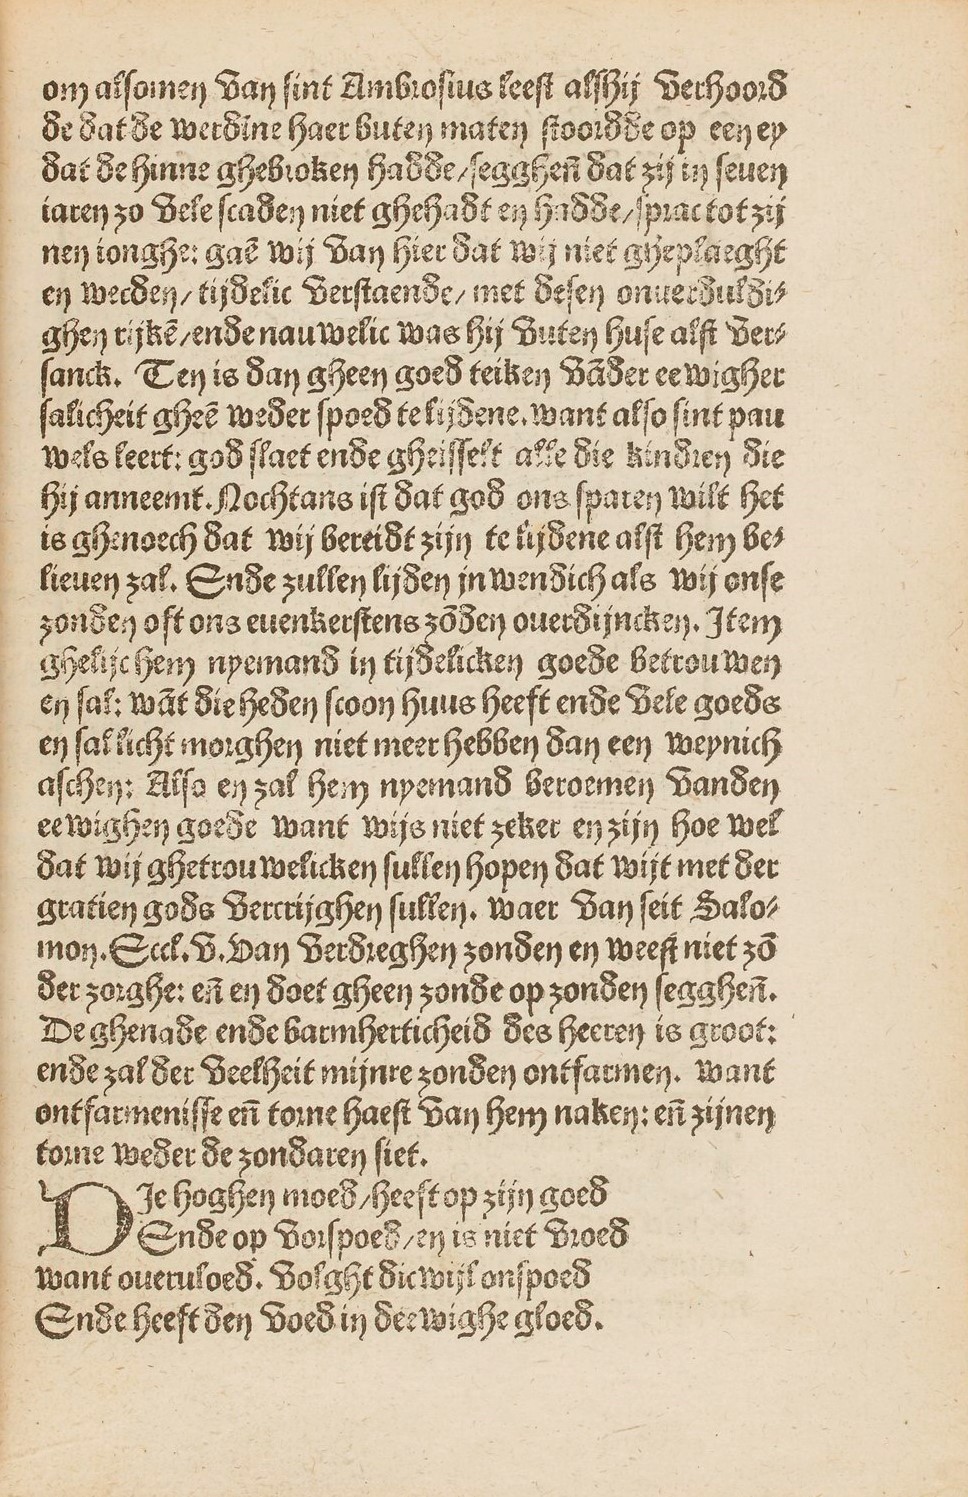 om alsomen van sint Ambrosius leest alshij verhoord
de dat de werdīne haer buten maten stoordde op een ey
dat de hinne ghebroken hadde/segghen̄ dat zij in seuen
iaren zo vele scaden niet ghehadt en hadde/sprac tot zij
nen ionghe: gaē wij van hier dat wij niet gheplaeght
en werden/ tijdelic verstaende/ met desen onuerduldi⸗
ghen rijkē/ende nauwelic was hij vuten huse alst ver⸗
sanck. Ten is dan gheen goed teiken vāder eewigher
salicheit gheē weder spoed te lijdene. want also sint pau
wels leert: god slaet ende gheisselt alle die kindren die
hij anneemt. Nochtans ist dat god ons sparen wilt het
is ghenoech dat wij bereidt zijn te lijdene alst hem be⸗
lieuen zal. Ende zullen lijden jnwendich als wij onse
zonden oft ons euenkerstens zōden ouerdijncken. Item
ghelijc hem nyemand in tijdelicken goede betrouwen
en sal: wāt die heden scoon huus heeft ende vele goeds
en sal licht morghen niet meer hebben dan een weynich
aschen: Also en zal hem nyemand beroemen vanden
eewighen goede want wijs niet zeker en zijn hoe wel
dat wij ghetrouwelicken sullen hopen dat wijt met der
gratien gods vercrijghen sullen. waer van seit Salo⸗
mon. Eccl. v. van verdreghen zonden en weest niet zō
der zorghe: en̄ en doet gheen zonde op zonden segghen̄.
De ghenade ende barmherticheid des heeren is groot:
ende zal der veelheit mijnre zonden ontfarmen. want
ontfarmenisse en̄ torne haest van hem naken: en̄ zijnen
torne weder de zondaren siet.
DIe hoghen moed/heeft op zijn goed
Ende op vorspoed/en is niet vroed
want oueruloed. volght dicwijl onspoed
Ende heeft den voed in deewighe gloed.